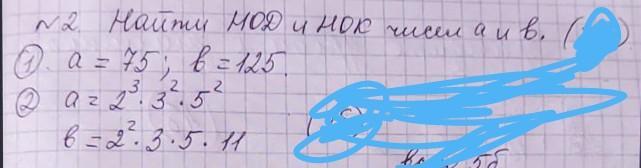 №2. Найти НОД и НОК чисел а и в. (
① а = 75; в = 125.
② а = 2³ · 3² · 5²
в = 2² · 3 · 5 · 11